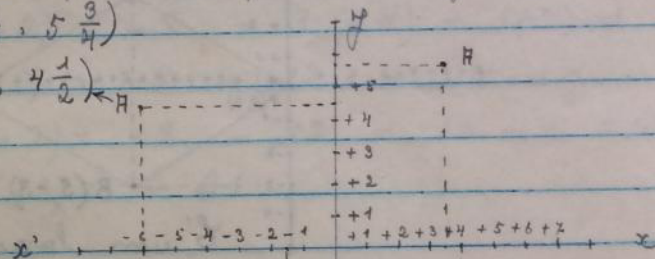 , 5 3/4) y A
, 4 1/2) ← A +5
+4
+3
+2
+1
x' -6 -5 -4 -3 -2 -1 +1 +2 +3 +4 +5 +6 +7 x